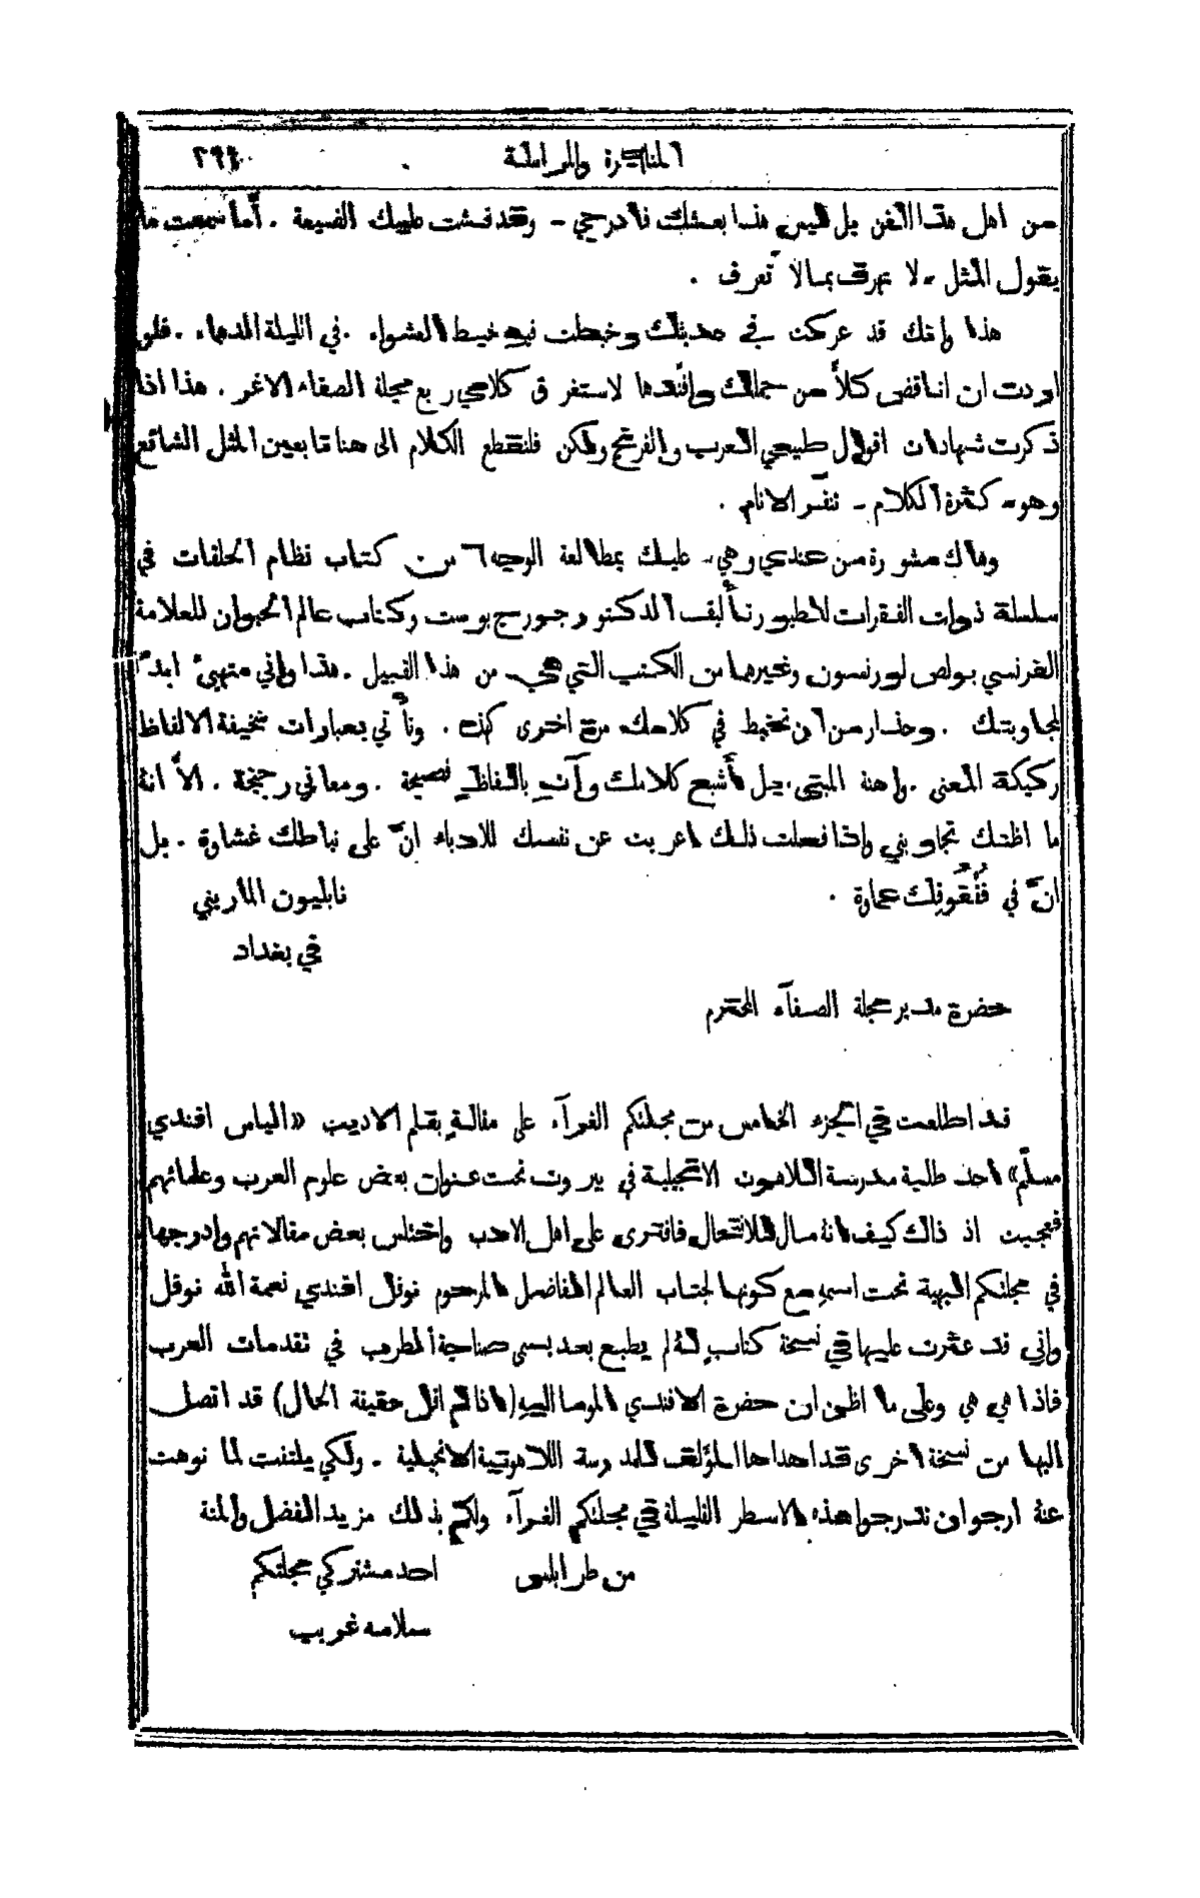 المناظرة والمراسلة
من اهل هذا الفن بل ليس هذا بعشك فادرجي - وقد فشت عليك الضيعة . أما سمعت ما
يقول المثل - لا تهرف بما لا تعرف .
هذا وانك قد عركت في حديثك وخبطت فيه خبط العشواء . في الليلة الدهماء . فلو
اردت ان اناقض كلاً من جملك وافندها لاستغرق كلامي ربع مجلة الصفاء الاغر . هذا اذا
ذكرت شهادات اقوال طبيعي العرب والفرنج ولكن فلنقطع الكلام الى هنا تابعين المثل الشائع
وهو - كثرة الكلام - تنفّر الانام .
وهاك مشورة من عندي وهي - عليك بمطالعة الوجه ٦ من كتاب نظام الحلقات في
سلسلة ذوات الفقرات للطيور تأليف الدكتور جورج بوست وكتاب عالم الحيوان للعلامة
الفرنسي بولص لورنسون وغيرهما من الكتب التي هي من هذا القبيل . هذا واني متهيئ ابداً
لمجاوبتك . وحذار من ان تخبط في كلامك مرة اخرى كهذه . وتأتي بعبارات سخيفة الالفاظ
ركيكة المعنى . واهنة المبنى ، بل أشبع كلامك وآت بالفاظ فصيحة . ومعاني رجيحة . الاّ انهُ
ما اظنك تجاوبني واذا فعلت ذلك اعربت عن نفسك للادباء انّ على نباطك غشاوة . بل
انّ في عماوة .
نابليون الماريني
في بغداد
حضرة مدير مجلة الصفآء المحترم
قد اطلعت في الجزء الخامس من مجلتكم الغرآء على مقالةٍ بقلم الاديب «الياس افندي
مسلّم» احد طلبة مدرسة اللاهوت الانجيلية في بيروت تحت عنوان بعض علوم العرب وعلمائهم
فعجبت اذ ذاك كيف انهُ مال للانتحال فافترى على اهل الادب واختلس بعض مقالاتهم وادرجها
في مجلتكم البهية تحت اسمهِ مع كونها لجناب العالم الفاضل المرحوم نوفل افندي نعمة الله نوفل
واني قد عثرت عليها في نسخة كتابٍ لهُ لم يطبع بعد يسمى صناجة الطرب في تقدمات العرب
فاذا هي هي وعلى ما اظن ان حضرة الافندي الموما اليهِ (اذا لم اقل حقيقة الحال) قد اتصل
اليها من نسخة اخرى قد اهداها المؤلف للمدرسة اللاهوتية الانجيلية . ولكي يلتفت لما نوهت
عنهُ ارجو ان تدرجوا هذه الاسطر القليلة في مجلتكم الغرآء ولكم بذلك مزيد الفضل والمنة
من طرابلس احد مشتركي مجلتكم
سلامه غريب